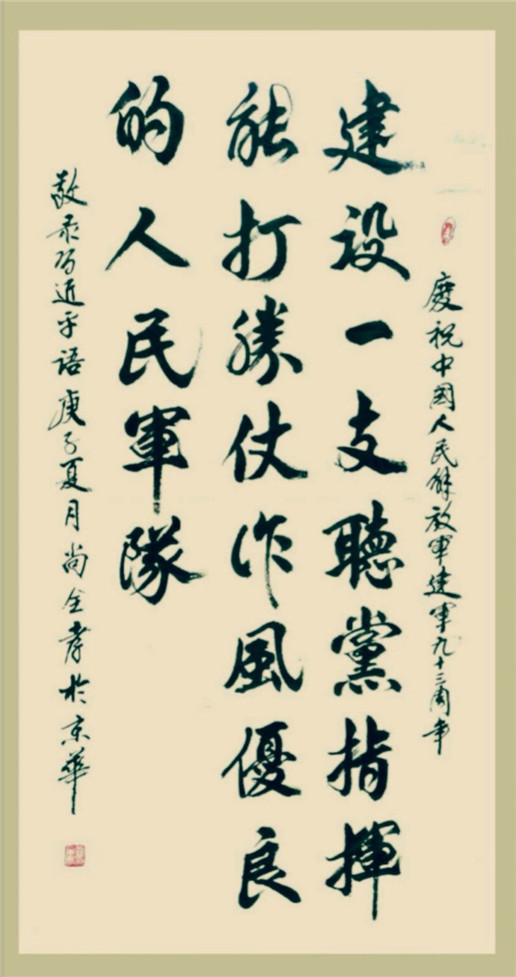 慶祝中國人民解放軍建軍九十三周年
建設一支聽黨指揮
能打勝仗作風優良
的人民軍隊
敬录习近平語庚子夏月尚全孝於京華